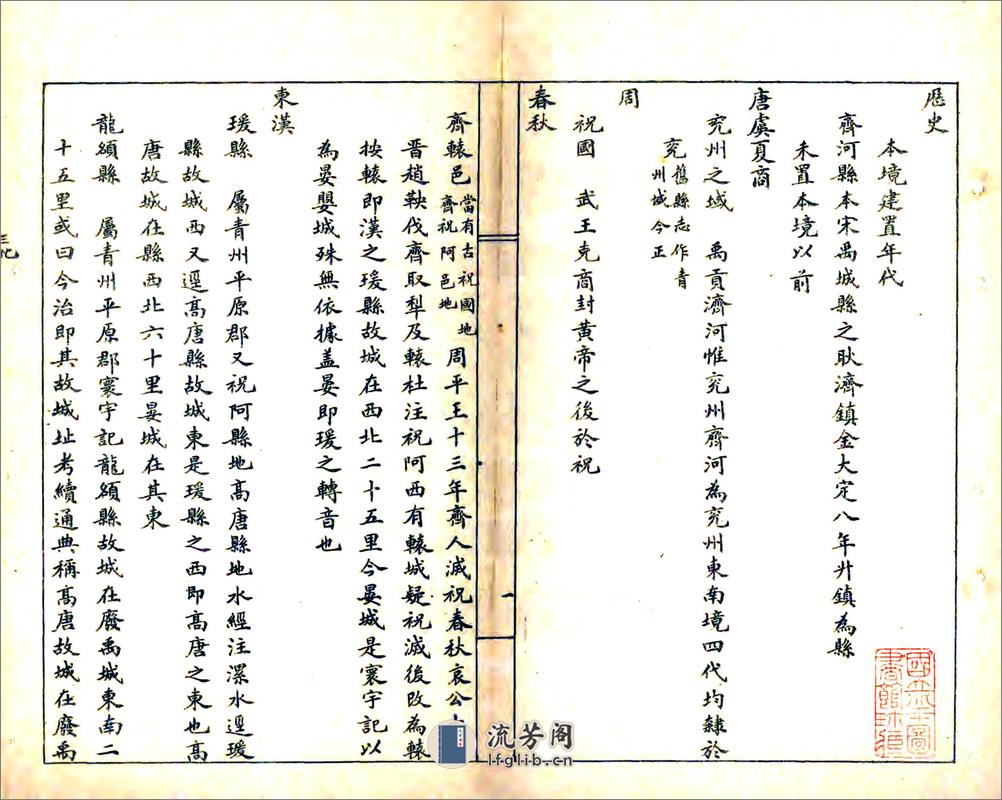 歷史
本境建置年代
齊河縣本宋禹城縣之耿濟鎮金大定八年廾鎮為縣
未置本境以前
唐虞夏商
兖州之域　禹貢濟河惟兖州齊河為兖州東南境四代均隸於
兖舊縣志作青州城今正
周
祝國　武王克商封黃帝之後於祝
春秋
齊轅邑當有古祝國地齊祝阿邑地　周平王十三年齊人滅祝春秋哀公十
晋趙鞅伐齊取犁及轅杜注祝阿西有轅城疑祝滅後改為轅
按轅即漢之瑗縣故城在西北二十五里今晏城是寰宇記以
為晏嬰城殊無依據盖晏即瑗之轉音也
東漢
瑗縣　屬青州平原郡又祝阿縣地高唐縣地水經注漯水逕瑗
縣故城西又逕高唐縣故城東是瑗縣之西即高唐之東也高
唐故城在縣西北六十里晏城在其東
龍頟縣　屬青州平原郡寰宇記龍頟縣故城在廢禹城東南二
十五里或曰今治即其故城址考續通典稱高唐故城在廢禹
一
流芳阁
lfglib.cn